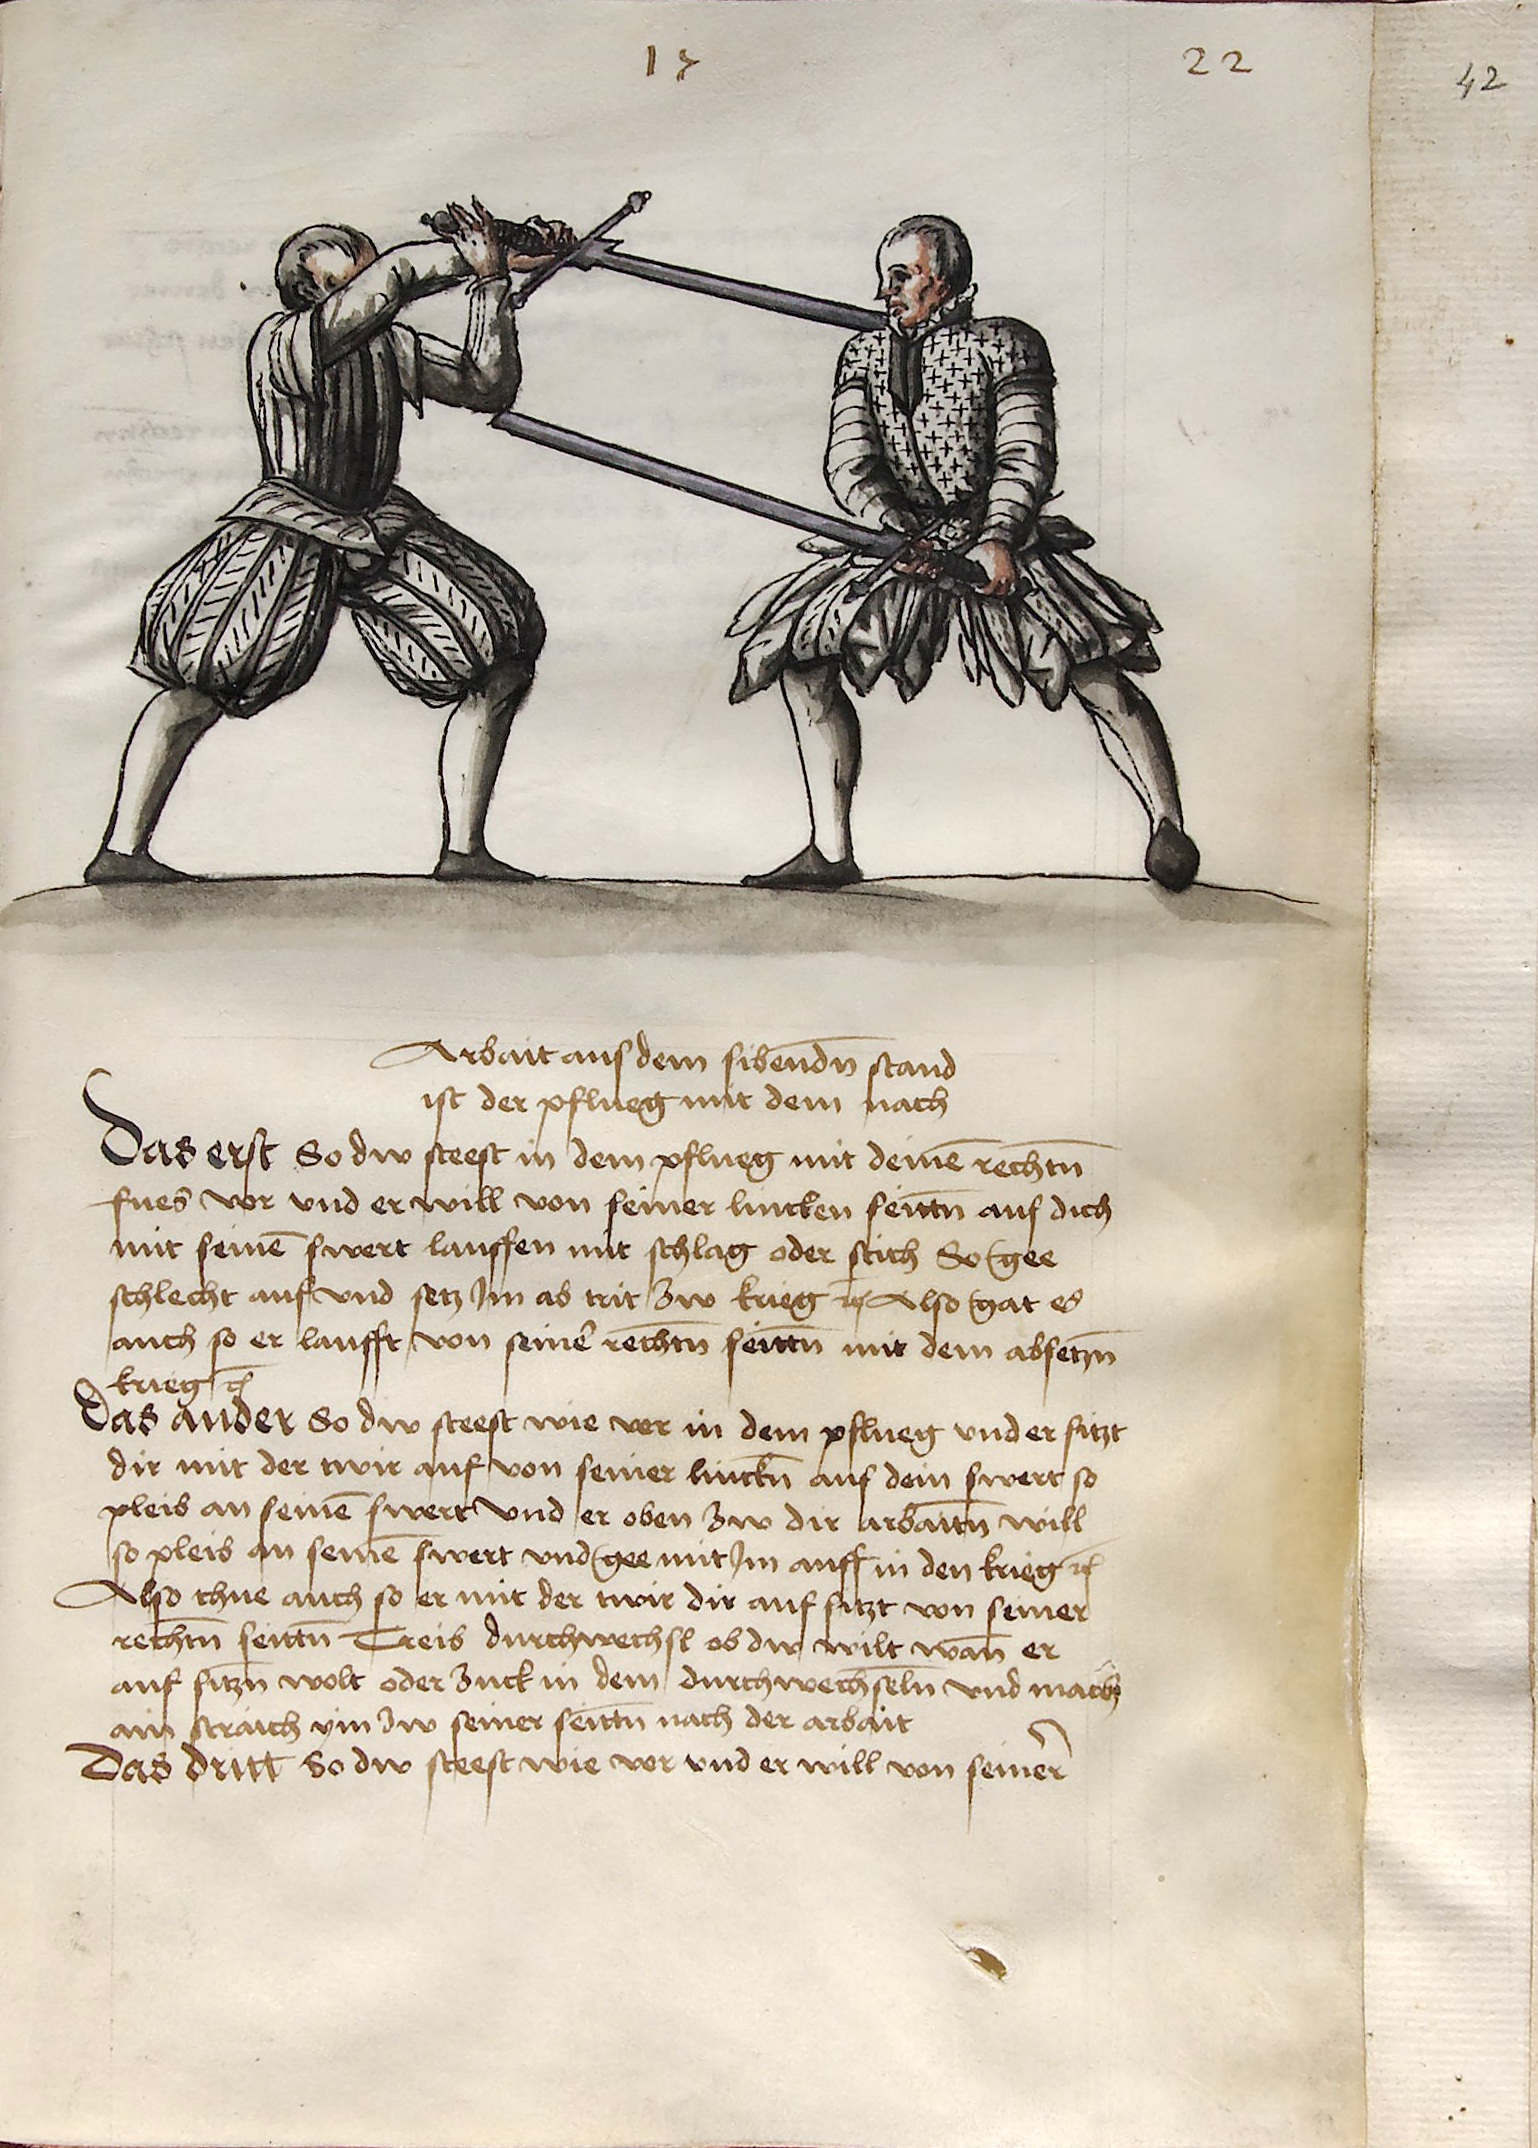 17 22 42
Arbait aus dem sibendn̄ stand
ist der pflueg mit dem nach
Das erst So dw steest in dem pflueg mit deinē rechtn̄
fues vor vnd er will von seiner lincken seittn̄ auf dich
mit seinē swert lauffen mit schlag oder stich So gee
schlecht auf vnd setz Im ab trit zw krieg ⁊c Also gat es
auch so er laufft von seiner rechtn̄ seittn̄ mit dem absetzn̄
krieg ⁊c
Das ander So dw steest wie vor in dem pflueg vnd er sitzt
dir mit der twir auf von seiner linckn̄ auf dein swert so
pleib an seinē swert Vnd er oben zw dir arbaittn̄ will
so pleib an seinē swert vnd gee mit Im auff in den krieg ⁊c
Also thue auch so er mit der twir dir auf sitzt von seiner
rechtn̄ seittn̄ Treib durchwechsl ob dw wilt wan̄ er
auf sitzn̄ wolt oder zuck in dem durchwechseln̄ vnd mach
ain straich ym zw seiner seittn̄ nach der arbait
Das dritt So dw steest wie vor vnd er will von seiner